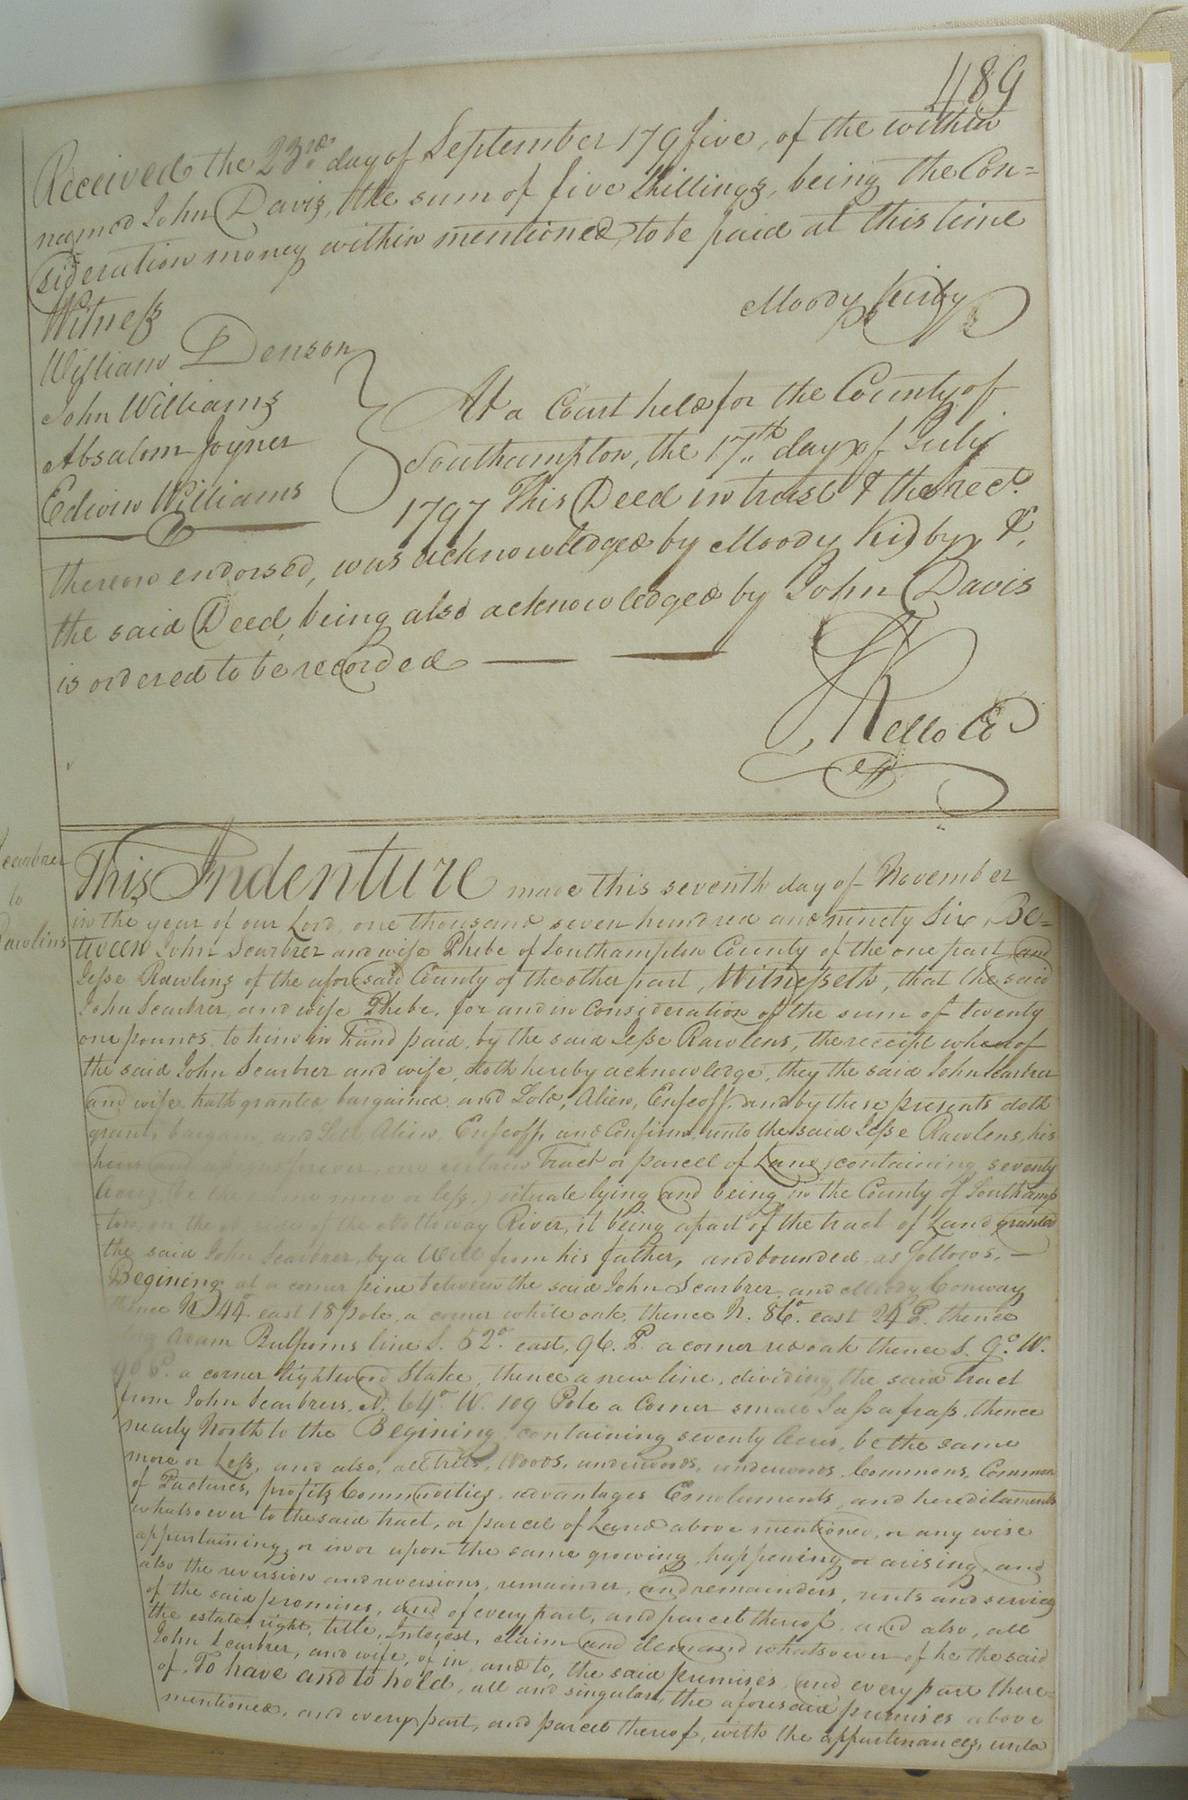 489
Received the 23rd day of September 179five, of the within
named John Davis, the sum of five Shillings, being the Con=
sideration money within mentioned, to be paid at this time
Moody Kirby
Witness
William Denson
John Williams
Absalom Joyner
Edwin Williams
At a Court held for the County of
Southampton, the 17th day of July
1797 This Deed in trust & the rect.
thereon endorsed, was acknowledged by Moody Kirby, &
the said Deed, being also acknowledged by John Davis
is ordered to be recorded
Kello
to
Rawlins
This Indenture made this seventh day of November
in the year of our Lord, one thousand seven hundred and ninety Six Be=
tween John Scarbrer and wife Phebe of Southampton County of the one part and
Jesse Rawlins of the aforesaid County of the other part, Witnesseth, that the said
John Scarbrer, and wife Phebe, for and in Consideration of the sum of twenty
one pounds, to him in hand paid, by the said Jesse Rawlens, the receipt whereof
the said John Scarbrer and wife, doth hereby acknowledge, they the said John Scarbrer
and wife, hath granted bargained and Sold, Alien, Enfeoff, and by these presents doth
grant, bargain, and Sell Alien, Enfeoff, and Confirm, unto the said Jesse Rawlens, his
heirs and forever, one certain Tract or parcell of Land, containing seventy
Acres, be the same more or less, situate lying and being in the County of Southamp
ton, on the side of the Nottoway River, it being a part of the tract of Land granted
the said John Scarbrer, by a Will from his father, and bounded as follows,
Begining at a corner pine between the said John Scarbrer and Moody Conway
thence N 44° east 18 pole, a corner white oak, thence N. 86° east 24 P. thence
Adam line S. 52° east, 96. P. a corner red oak thence S. 9° W.
a corner lightwood Stake, thence a new line, dividing the said tract
from John Scarbrers, N. 64° W. 109 Pole a Corner small Sassafrass, thence
nearly North to the Begining, containing seventy Acres, be the same
more or Less, and also, all trees, Woods, underwoods, underwoods, Commons, Common
of Pastures, profits Commodities, advantages Emoluments, and hereditaments
whatsoever to the said tract, or parcel of Land above mentioned, or any wise
appertaining, or in or upon the same growing, happening or arising, and
also the reversion and reversions, remainder, and remainders, rents and services
of the said premises, and of every part, and parcel thereof, and also, all
the estate, right, title, Interest, claim and demand whatsoever of he the said
John Scarbrer, and wife, of in, and to, the said premises, and every part there=
of. To have and to hold, all and singular, the aforesaid premises above
mentioned, and every part, and parcel thereof, with the appurtenances, unto